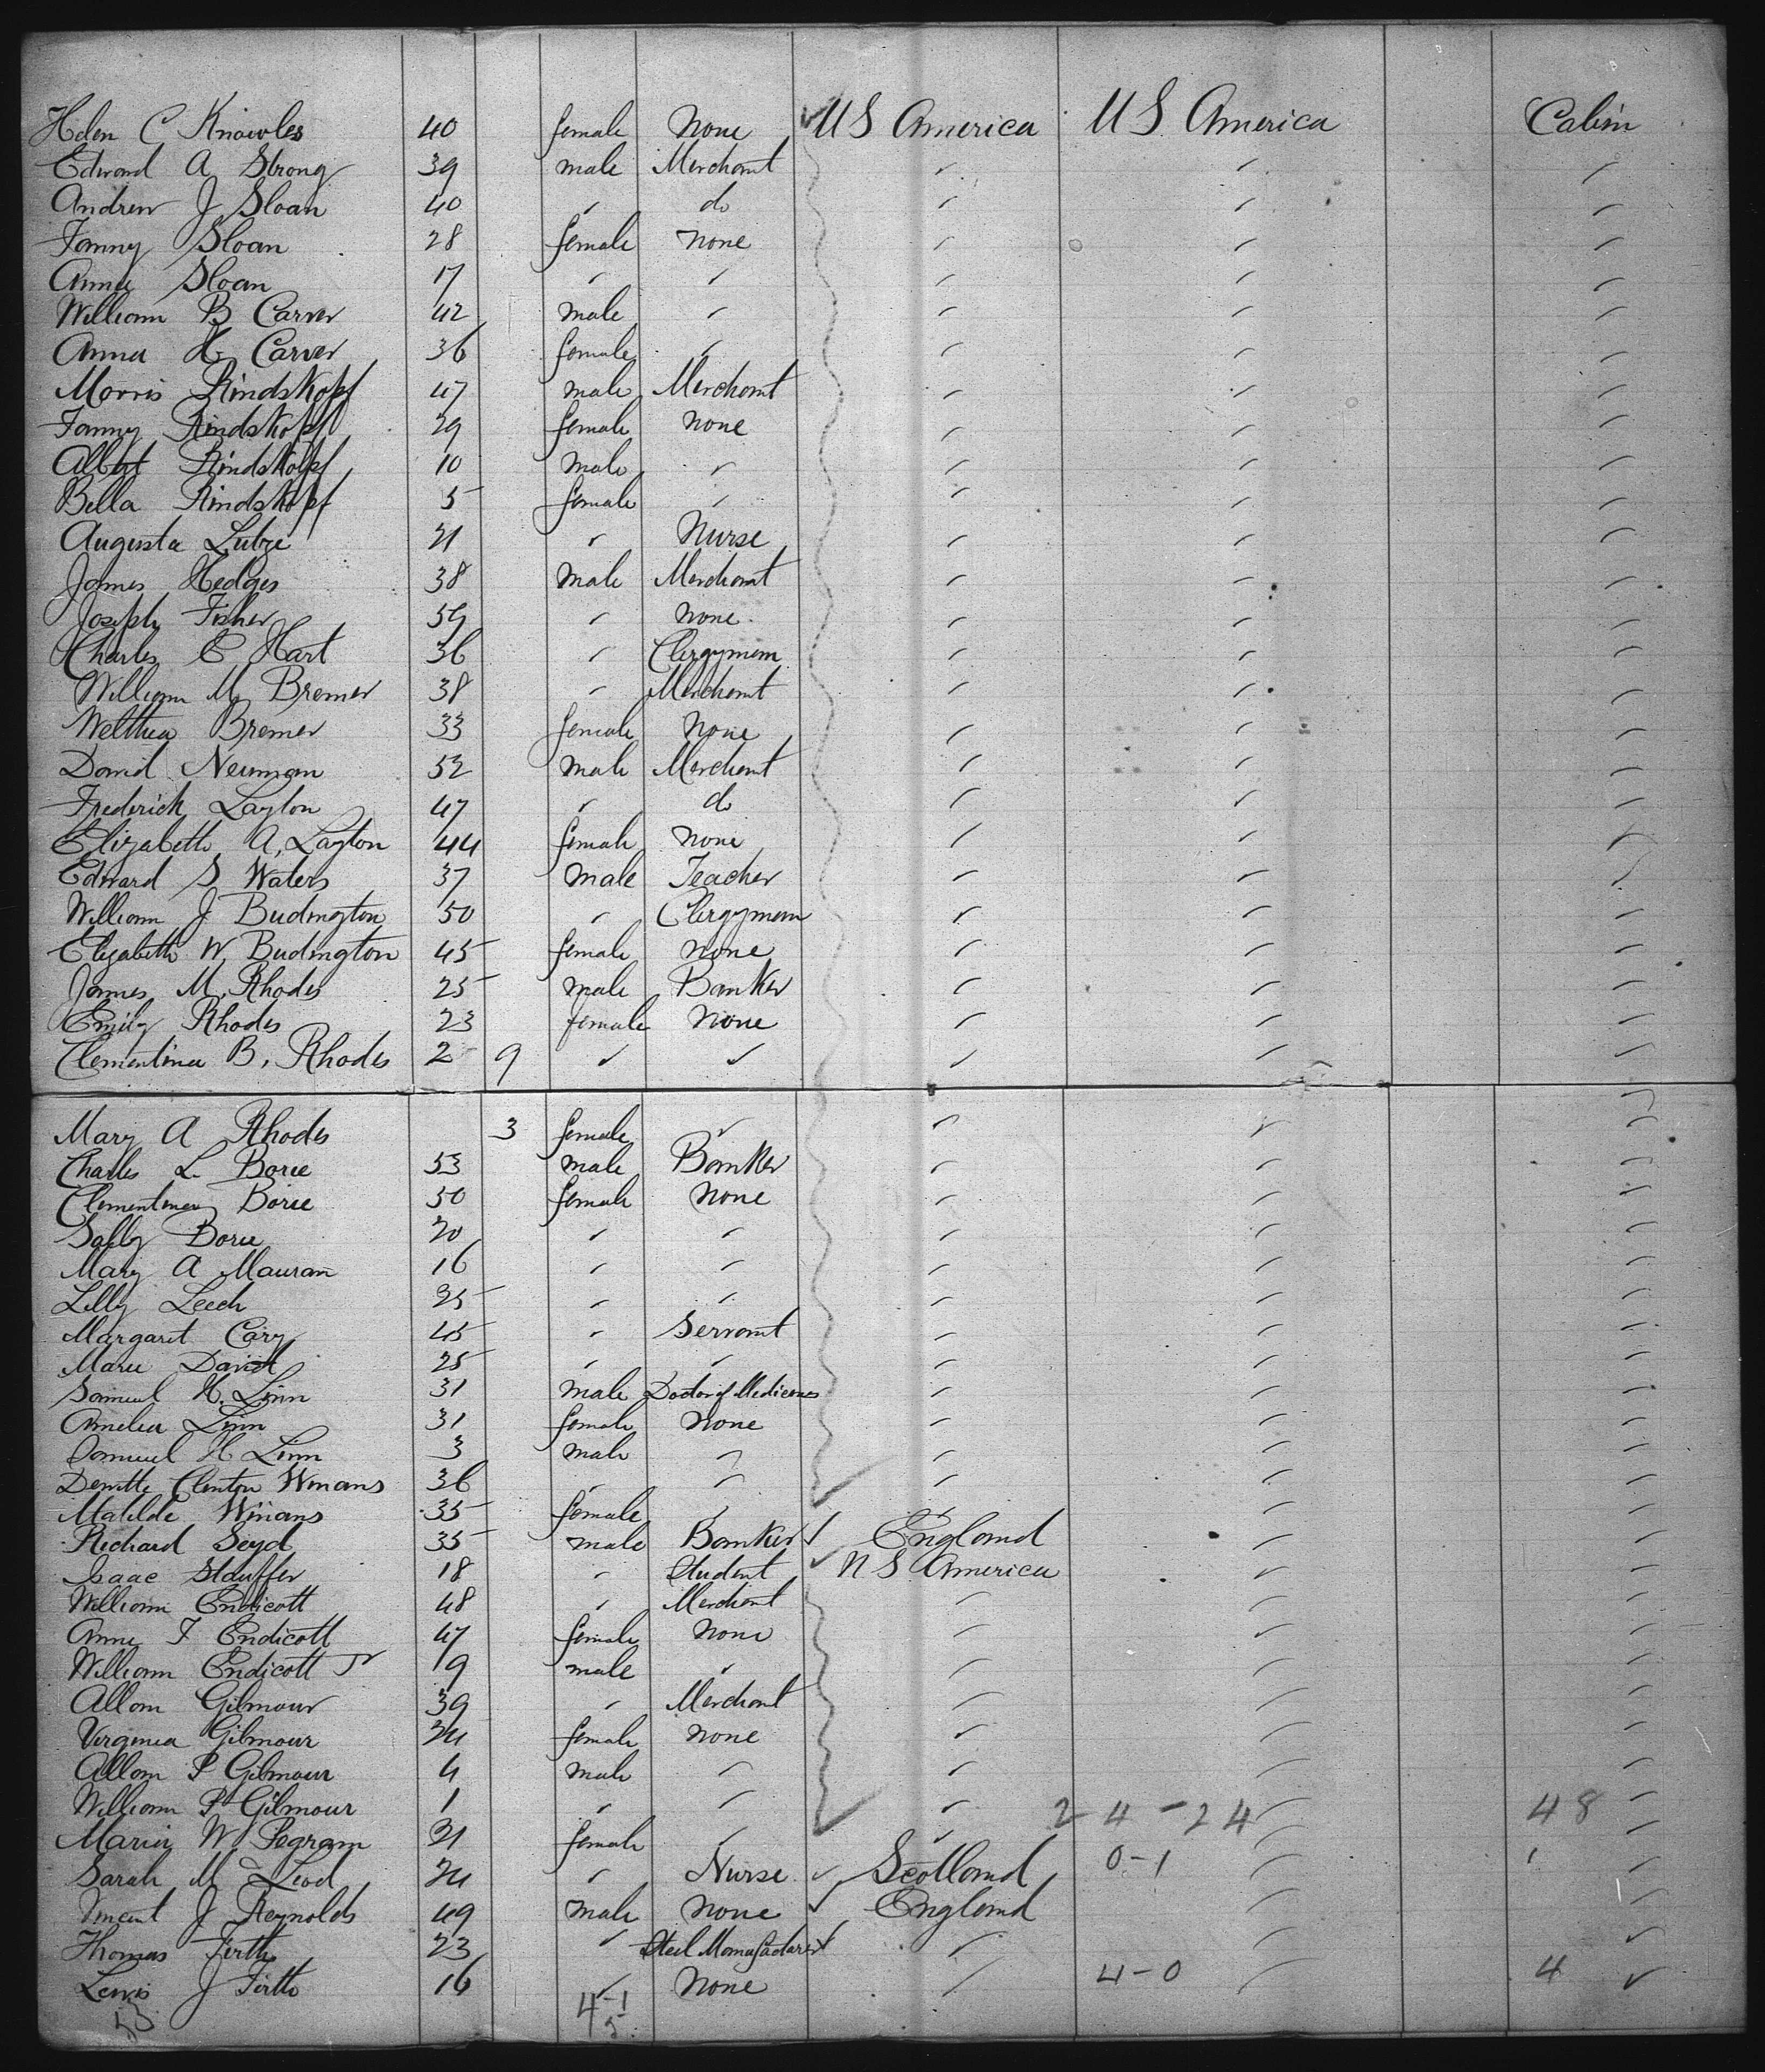 Helen C Knowles 40 female None US America US America Cabin
Edward A Strong 39 male Merchant " " "
Andrew J Sloan 40 " do " " "
Fanny Sloan 28 female none " " "
Annie Sloan 17 " " " " "
William B Carver 42 male " " " "
Anna H Carver 36 female " " " "
Morris Rindskopf 47 male Merchant " " "
Fanny Rindskopf 29 female none " " "
Albert Rindskopf 10 male " " " "
Bella Rindskopf 5 female " " " "
Augusta Lutze 21 " Nurse " " "
James Hedges 38 male Merchant " " "
Joseph Fisher 59 " none " " "
Charles E Hart 36 " Clergyman " " "
William M Bremer 38 " Merchant " " "
Welthea Bremer 33 female None " " "
David Neuman 52 male Merchant " " "
Frederick Layton 47 " do " " "
Elizabeth A, Layton 44 female none " " "
Edward S Waters 37 male Teacher " " "
William J Budington 50 " Clergyman " " "
Elizabeth W, Budington 45 female none " " "
James M. Rhodes 25 male Banker " " "
Emily Rhodes 23 female none " " "
Clementina B, Rhodes 2 9 " " " " "
Mary A Rhodes 3 female " " " "
Charles L. Borie 53 male Banker " " "
Clementina Borie 50 female none " " "
Sally Borie 20 " " " " "
Mary A Mauran 16 " " " " "
Lilly Leech 35 " " " " "
Margaret Cary 45 " Servant " " "
Marie David 25 " " " " "
Samuel H. Linn 31 male Doctor of Medicines " " "
Amelia Linn 31 female none " " "
Samuel H Linn 3 male " " " "
Dewitt Clinton Winans 36 " " " " "
Matilde Winans 35 female " " " "
Richard Seyd 35 male Banker England " "
Isaac Stauffer 18 " Student US America " "
William Endicott 48 " Merchant " " "
Anne F Endicott 47 female None " " "
William Endicott Jr 19 male " " " "
Allan Gilmour 39 " Merchant " " "
Virginia Gilmour 24 female none " " "
Allan P Gilmour 4 male " " " "
William P Gilmour 1 " " " 2 4 - 24 " 48 "
Maria W Pegram 21 female " " " "
Sarah Mc Leod 24 " Nurse Scotland 0-1 " 1 "
Vincent J Reynolds 49 male none England " "
Thomas Firth 23 " Steel Manufacturer " " "
Lewis J Firth 16 " None " 4-0 " 4 "
53 4-1
5